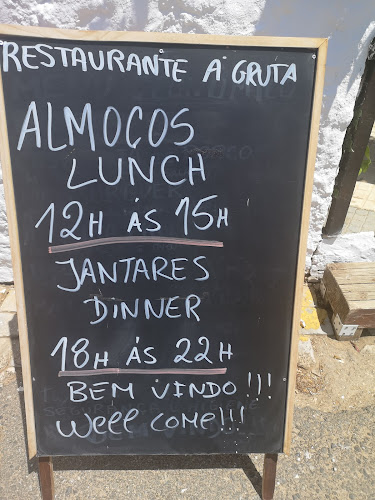 RESTAURANTE A GRUTA
ALMOÇOS
LUNCH
12H ÁS 15H
JANTARES
DINNER
18H ÁS 22H
BEM VINDO!!!
Well COME!!!